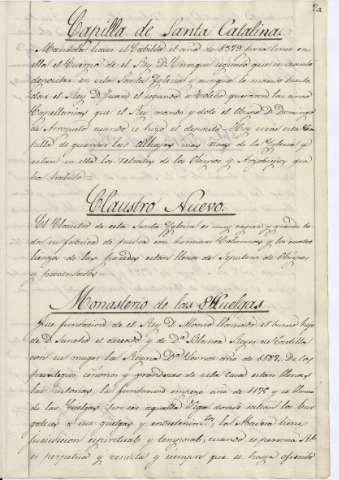 Capilla de Santa Catalina
Mandola hacer el Cabildo el año de 1379 para tener en
ella el Cuerpo de el Rey D. Enrique segundo que se
depositar en esta Santa Yglesia y aunque la
dora el Rey D. Juan el segundo a Toledo quedaron las cinco
Capellanias que el Rey mando y dotó el Obispo D. Domingo
de Arroyuelo cuando se hizo el deposito. Hoy sirve esta Ca-
pilla de guardar las Alhajas mas ricas de la Yglesia y
estan en ella los retratos de los Obispos y Arzobispos que
ha habido.
Claustro Nuevo.
El Claustro de esta Santa Yglesia es muy capaz y grande to-
do su fabrica de piedra con hermosas Columnas y los cuatro
lienzos de las paredes estan llenos de Sepulcros de Obispos
y prevendados
Monasterio de las Huelgas
Fue fundacion de el Rey D. Alonso llamado el bueno hijo
de D. Sancho el deseado y de Dª Blanca Reyes de Castilla
con su muger la Reyna Dª Leonor año de 1187. De los
privilegios, esenciones y grandezas de esta Casa estan llenas
las historias, la fundacion empezo año de 1175 y se llama
de las Huelgas por ser aquellos donde salian los bur-
galeses a sus huelgas y entretenimtos, la Abadesa tiene
jurisdiccion espiritual y temporal,
es perpetua y